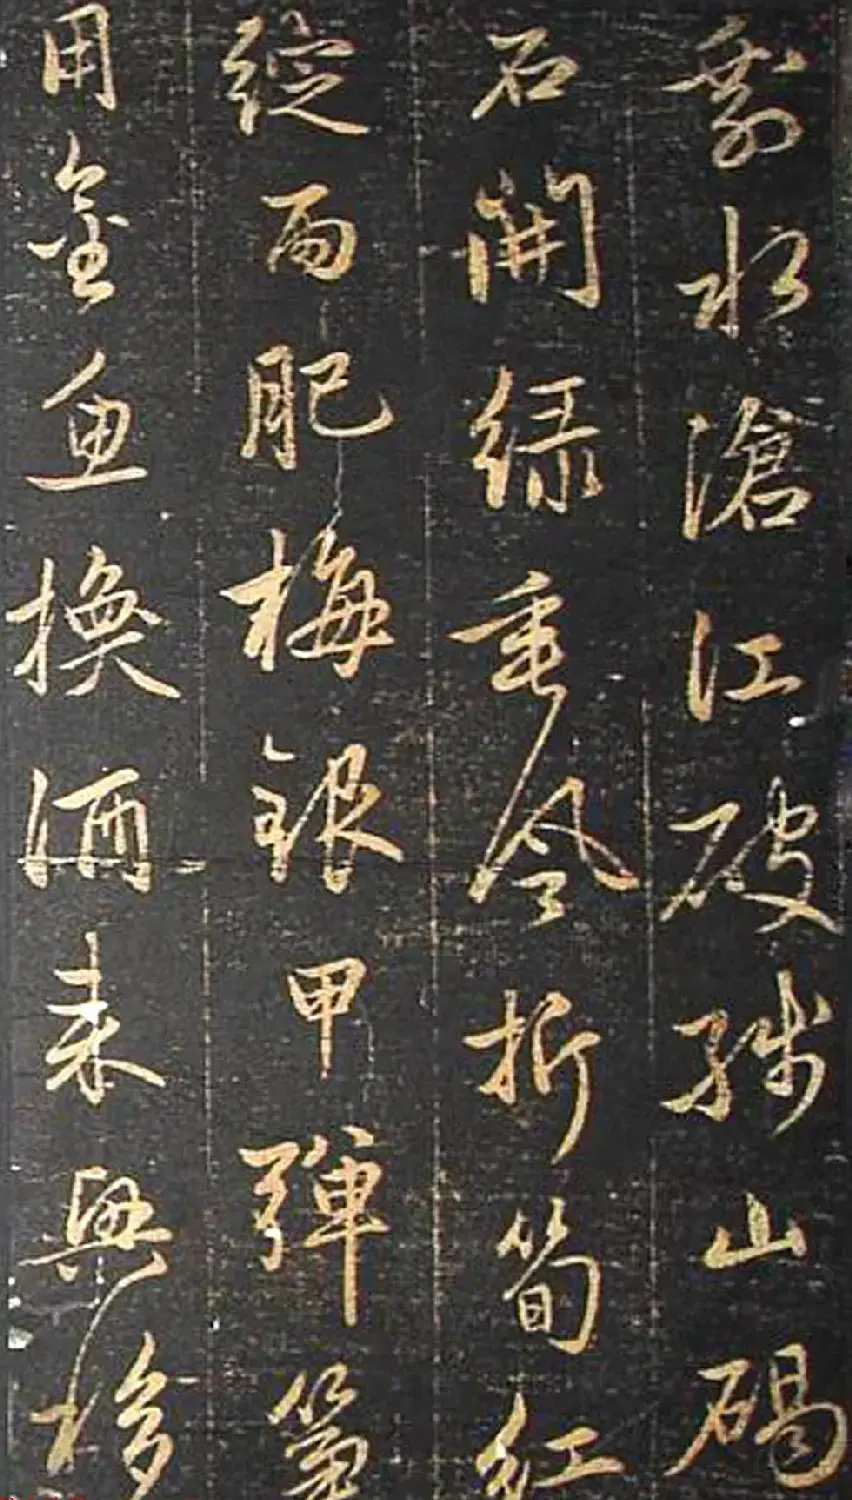 剩水滄江破殘山碣
石開緑垂風折筍紅
綻雨肥梅銀甲彈箏
用金魚換酒来興移